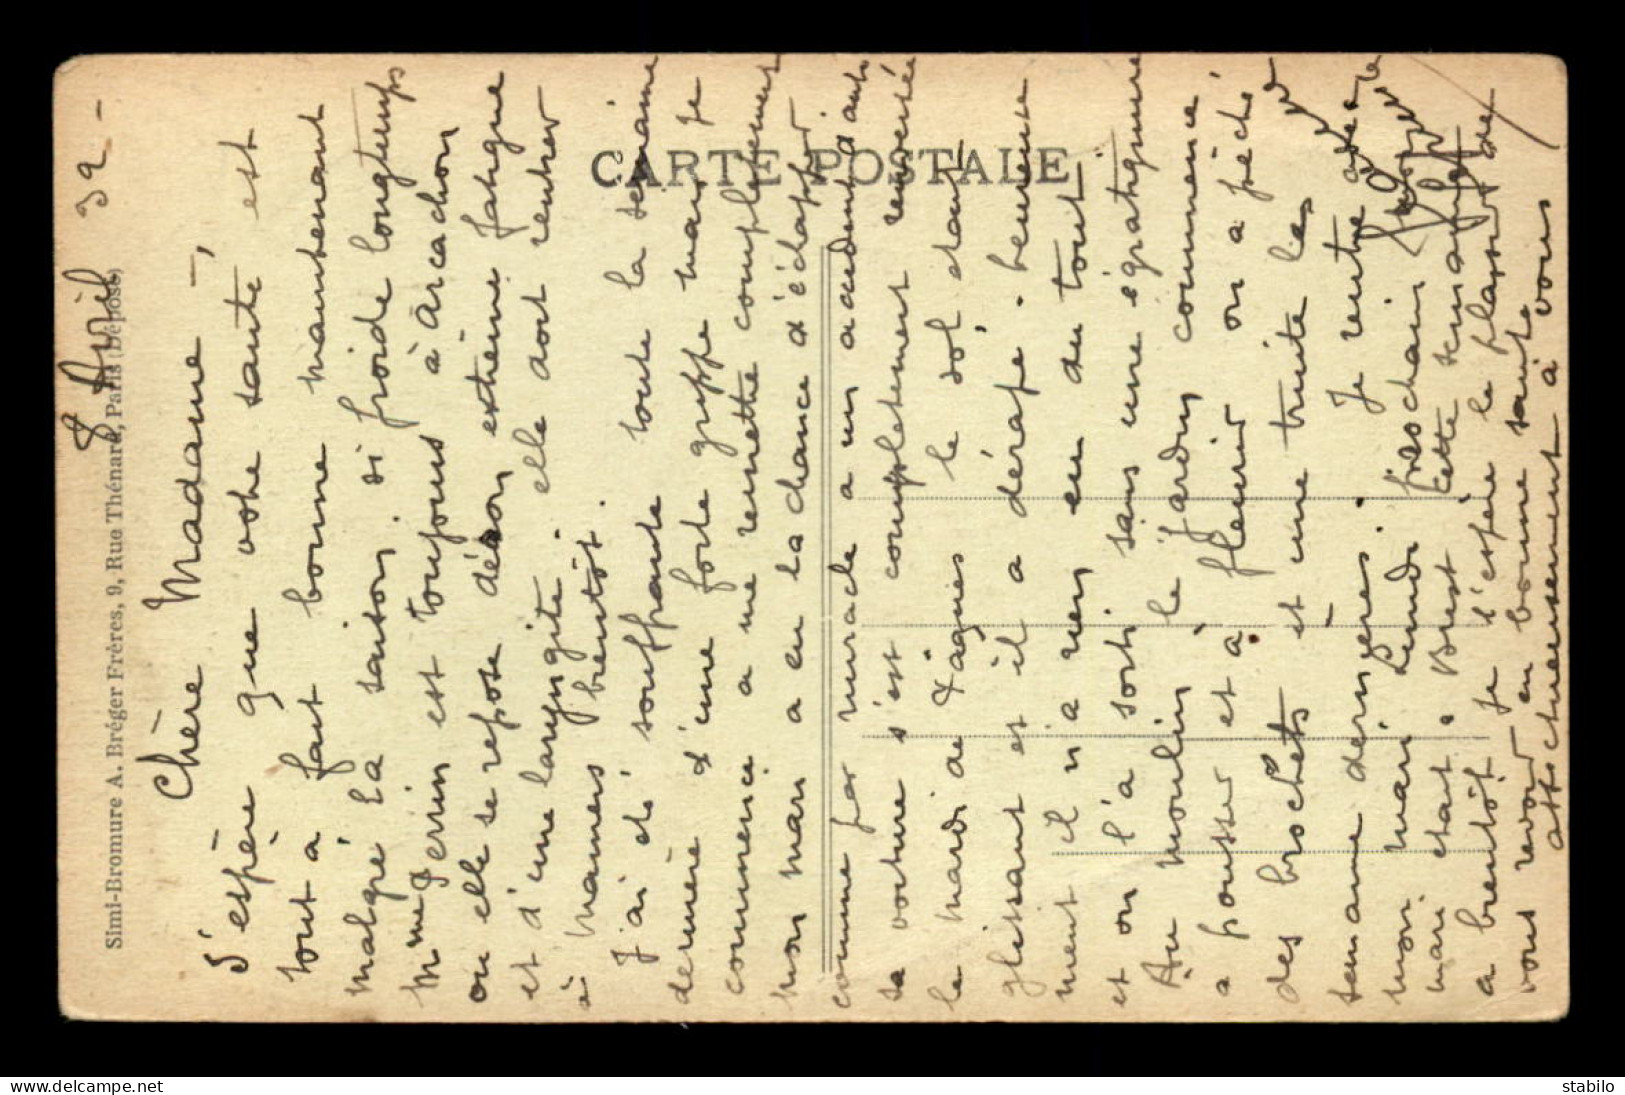 8 Avril 32 -
Simi-Bromure A. Bréger Frères, 9, Rue Thénard, Paris (Déposé)
CARTE POSTALE
Chère Madame -,
J'espère que votre santé est
tout à fait bonne maintenant
malgré la saison si froide longtemps
Mme Perrin est toujours à Arcachon
où elle se repose extrème fatigue
et d'une laryngite. elle doit rentrer
à Mamers bientôt.
J'ai été souffrante toute la semaine
dernière d'une forte grippe mais je
commence à me remettre complètement
mon mari a eu la chance d'échapper
comme par miracle à un accident d'auto
sa voiture s'est complètement renversée
le mardi de Pâques le sol étant
glissant et il a dérapé. heureuse
ment il n'a rien eu du tout
et on l'a sorti sans une égratignure
Au moulin le jardin commence
à pousser et à fleurir on a pêché
des brochets et une truite les
semaine dernières. Je rentre avec
mon mari Lundi prochain
mari était à Brest cette semaine
à bientôt je l'espère le plaisir de
vous revoir en bonne santé
affectueusement à vous
www.delcampe.net
stabilo